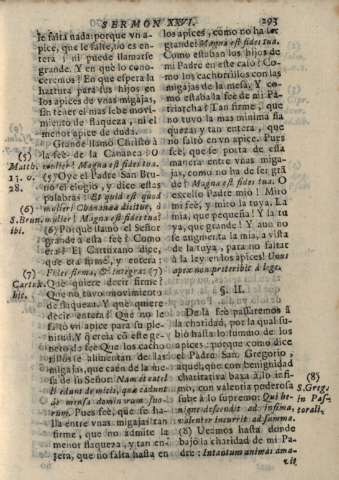 SERMON XXVI. 293
le falta nada: porque vn a-
pice, que le falte, no es en-
tera; ni puede llamarse
grande. Y en què lo cono-
cemos? En que espera la
hartura para sus hijos en
los apices de vnas migajas,
sin tener el mas lebe movi-
miento de flaqueza, ni el
menor apice de duda.
Grande llamò Christo à
la feè de la Cananea:
(5)
Matth.
15. v.
28.
mulier! Magna est fides tua.
(5) Oye el Padre San Bru-
no el elogio, y dice estas
palabras: Et quid est quod
(6)
S. Brun.
ibi.
mulier! Magna est fides tua?
(6) Porque llamò el Señor
grande à esta feè? Como
era? El Cartuxano dice,
que era firme, y entera:
(7)
Cartux.
hic.
Fides firma, & integra. (7)
Què quiere decir firme?
Que no tuvo movimiento
de flaqueza. Y què quiere
decir entera? Que no le
faltò vn apice para su ple-
nitud. Y si creía esto ese ge-
nero de feè? Que los cacho-
rrillos se alimentan de las
migajas, que caen de la me-
sa de su Señor: Nam & catelli
edunt de micis, quæ cadunt
de mensa dominorum suo-
rum. Pues feè, que se ha-
lla entre vnas migajas tan
firme, que no admite la
menor flaqueza, y tan en-
tera, que no falta hasta en
los apices, como no ha de ser
grande? Magna est fides tua.
Como estaban los hijos de
mi Padre en este caso? Co-
mo los cachorrillos con las
migajas de la mesa. Y co-
mo estaba la feè de mi Pa-
triarcha? Tan firme, que
no tuvo la mas minima fla-
queza; y tan entera, que
no faltò en vn apice. Pues
feè, que se porta de esta
manera entre vnas miga-
jas, como no ha de ser gran-
de? Magna est fides tua. O
excelso Padre mio! Miro
mi feè, y miro la tuya. La
mia, que pequeña! Y la tu-
ya, que grande! Y aun no
se augmenta la mia, à vista
de la tuya, para no faltar
à la ley en los apices! Unus
apex non præteribit à lege.
§. II.
De la feè passarèmos à
la charidad, por la qual su-
biò hasta lo summo de los
apices: porque como dice
el Padre San Gregorio,
aquel, que con benignidad
charitativa baxa à lo infi-
mo, con valentia poderosa
(8)
S. Greg.
in Pas-
torali.
sube à lo supremo: Qui be-
nigne descendit ad infima,
valenter incurrit ad summa.
(8) Veamos hasta donde
bajò la charidad de mi Pa-
dre: Intantum animas ama-
vit